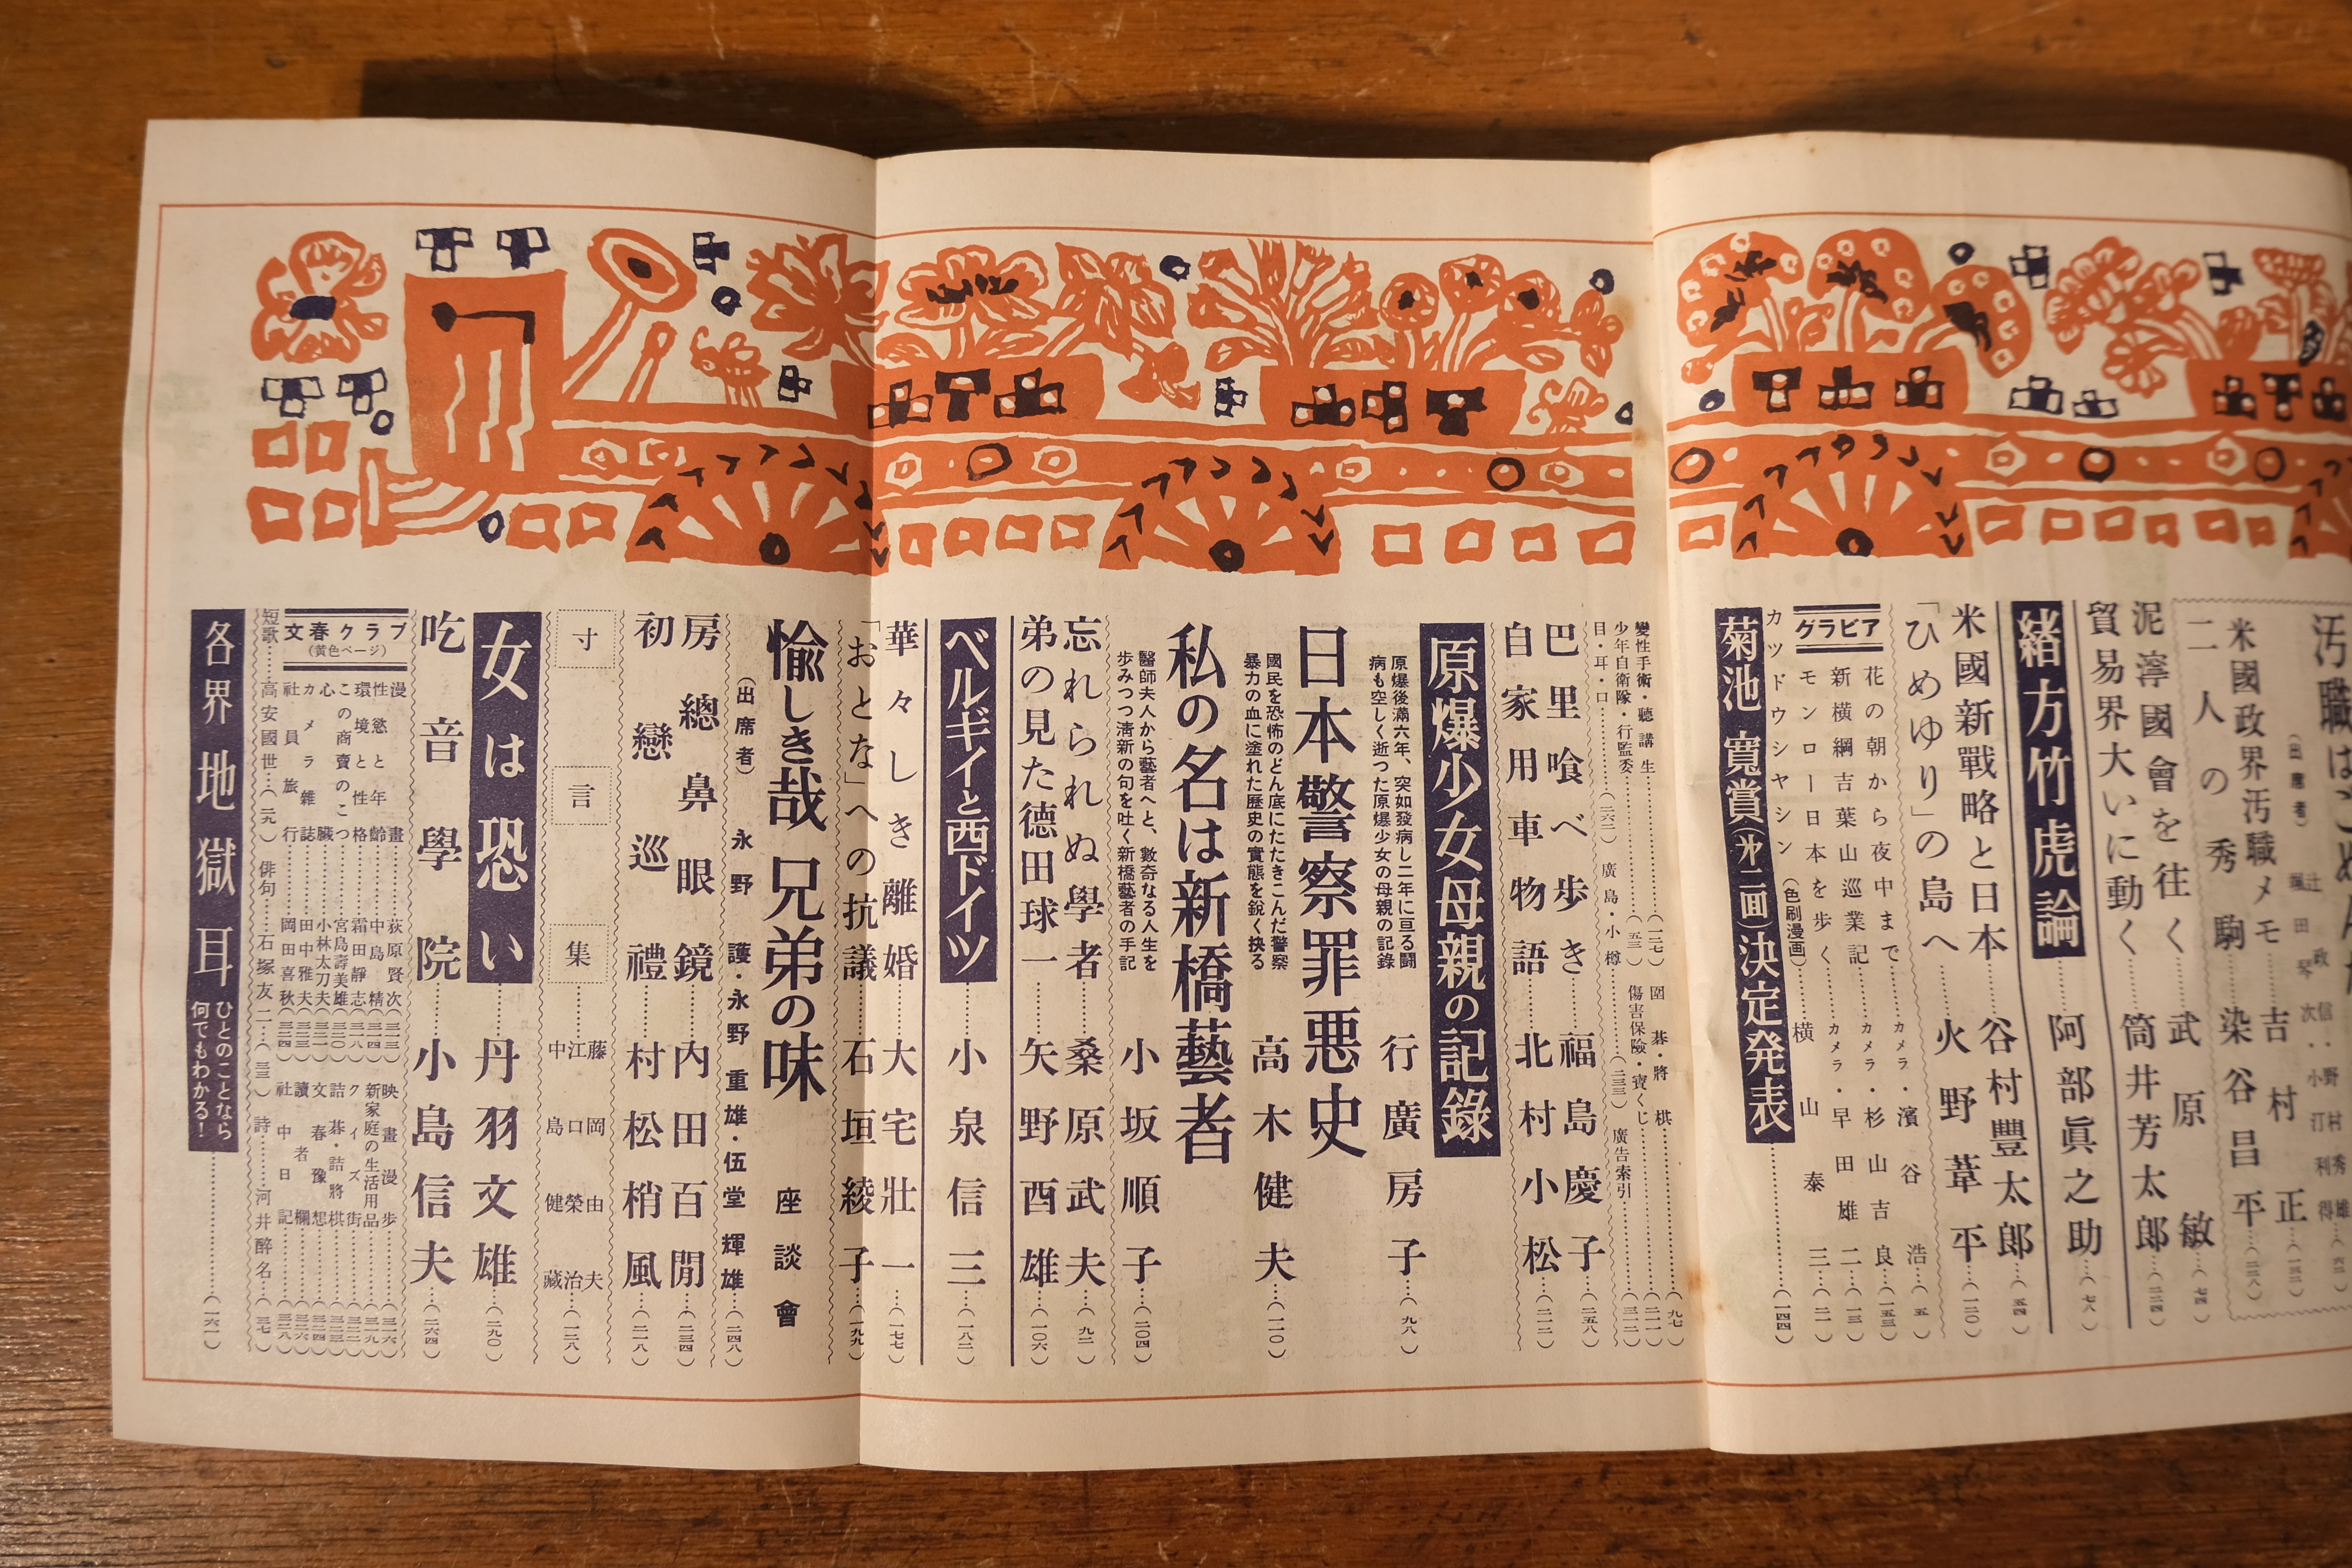 汚職
(出席者)
米國政界汚職メモ……吉村正
二人の秀駒……染谷昌平
泥濘國會を往く……武原敏…(七四)
貿易界大いに動く……筒井芳太郎
緒方竹虎論……阿部眞之助…(七八)
米國新戰略と日本……谷村豐太郎…(五四)
「ひめゆり」の島へ……火野葦平…(一二〇)
グラビア
花の朝から夜中まで……カメラ・濱谷浩…(五)
新橫綱吉葉山巡業記……カメラ・杉山吉良…(一五三)
モンロー日本を歩く……カメラ・早田雄二…(一三)
カツドウシヤシン(色刷漫画)……横山泰三…(二一)
菊池寬賞(㐧二囘)決定発表……(一四四)
變性手術・聽講生……(一二七)
少年自衛隊・行監委……
目・耳・口……(二六二)
廣島・小樽……
囲碁・將棋……(九七)
傷害保險・寶くじ……
廣告索引……(三一二)
巴里喰べ歩き……福島慶子…(二五八)
自家用車物語……北村小松…(二一二)
原爆少女母親の記錄
原爆後滿六年、突如發病し二年に亘る鬪
病も空しく逝つた原爆少女の母親の記錄
行廣房子…(九八)
日本警察罪悪史
國民を恐怖のどん底にたたきこんだ警察
暴力の血に塗れた歷史の實態を鋭く抉る
高木健夫…(一一〇)
私の名は新橋藝者
醫師夫人から藝者へと、數奇なる人生を
歩みつつ淸新の句を吐く新橋藝者の手記
小坂順子…(二〇四)
忘れられぬ學者……桑原武夫…(九二)
弟の見た德田球一……矢野酉雄…(一〇六)
ベルギイと西ドイツ……小泉信三…(一八二)
華々しき離婚……大宅壯一…(一七七)
「おとな」への抗議……石垣綾子…(一九九)
愉しき哉兄弟の味 座談會
(出席者) 永野護・永野重雄・伍堂輝雄…(二四八)
房總鼻眼鏡……内田百閒…(二三四)
初戀巡禮……村松梢風…(二一八)
寸言集
藤岡由夫
江口榮治
中島健藏…(一二八)
女は恐い……丹羽文雄…(二九〇)
吃音學院……小島信夫…(二六四)
文春クラブ
(黄色ページ)
漫畫……荻原賢次
性慾と年齡……中島精
環境と性格……霜田靜志
この商賣のこつ……宮島壽美雄
心臟……小林太刀夫
カメラ雜誌……田中雅夫
社員旅行……岡田喜秋
映畫漫歩
新家庭の生活用品
クイズ街
詰碁・詰將棋
文春豫想
讀者欄
社中日記
短歌……高安國世…
俳句……石塚友二…
詩……河井醉名…
各界地獄耳 ひとのことなら
何でもわかる!……(一六一)